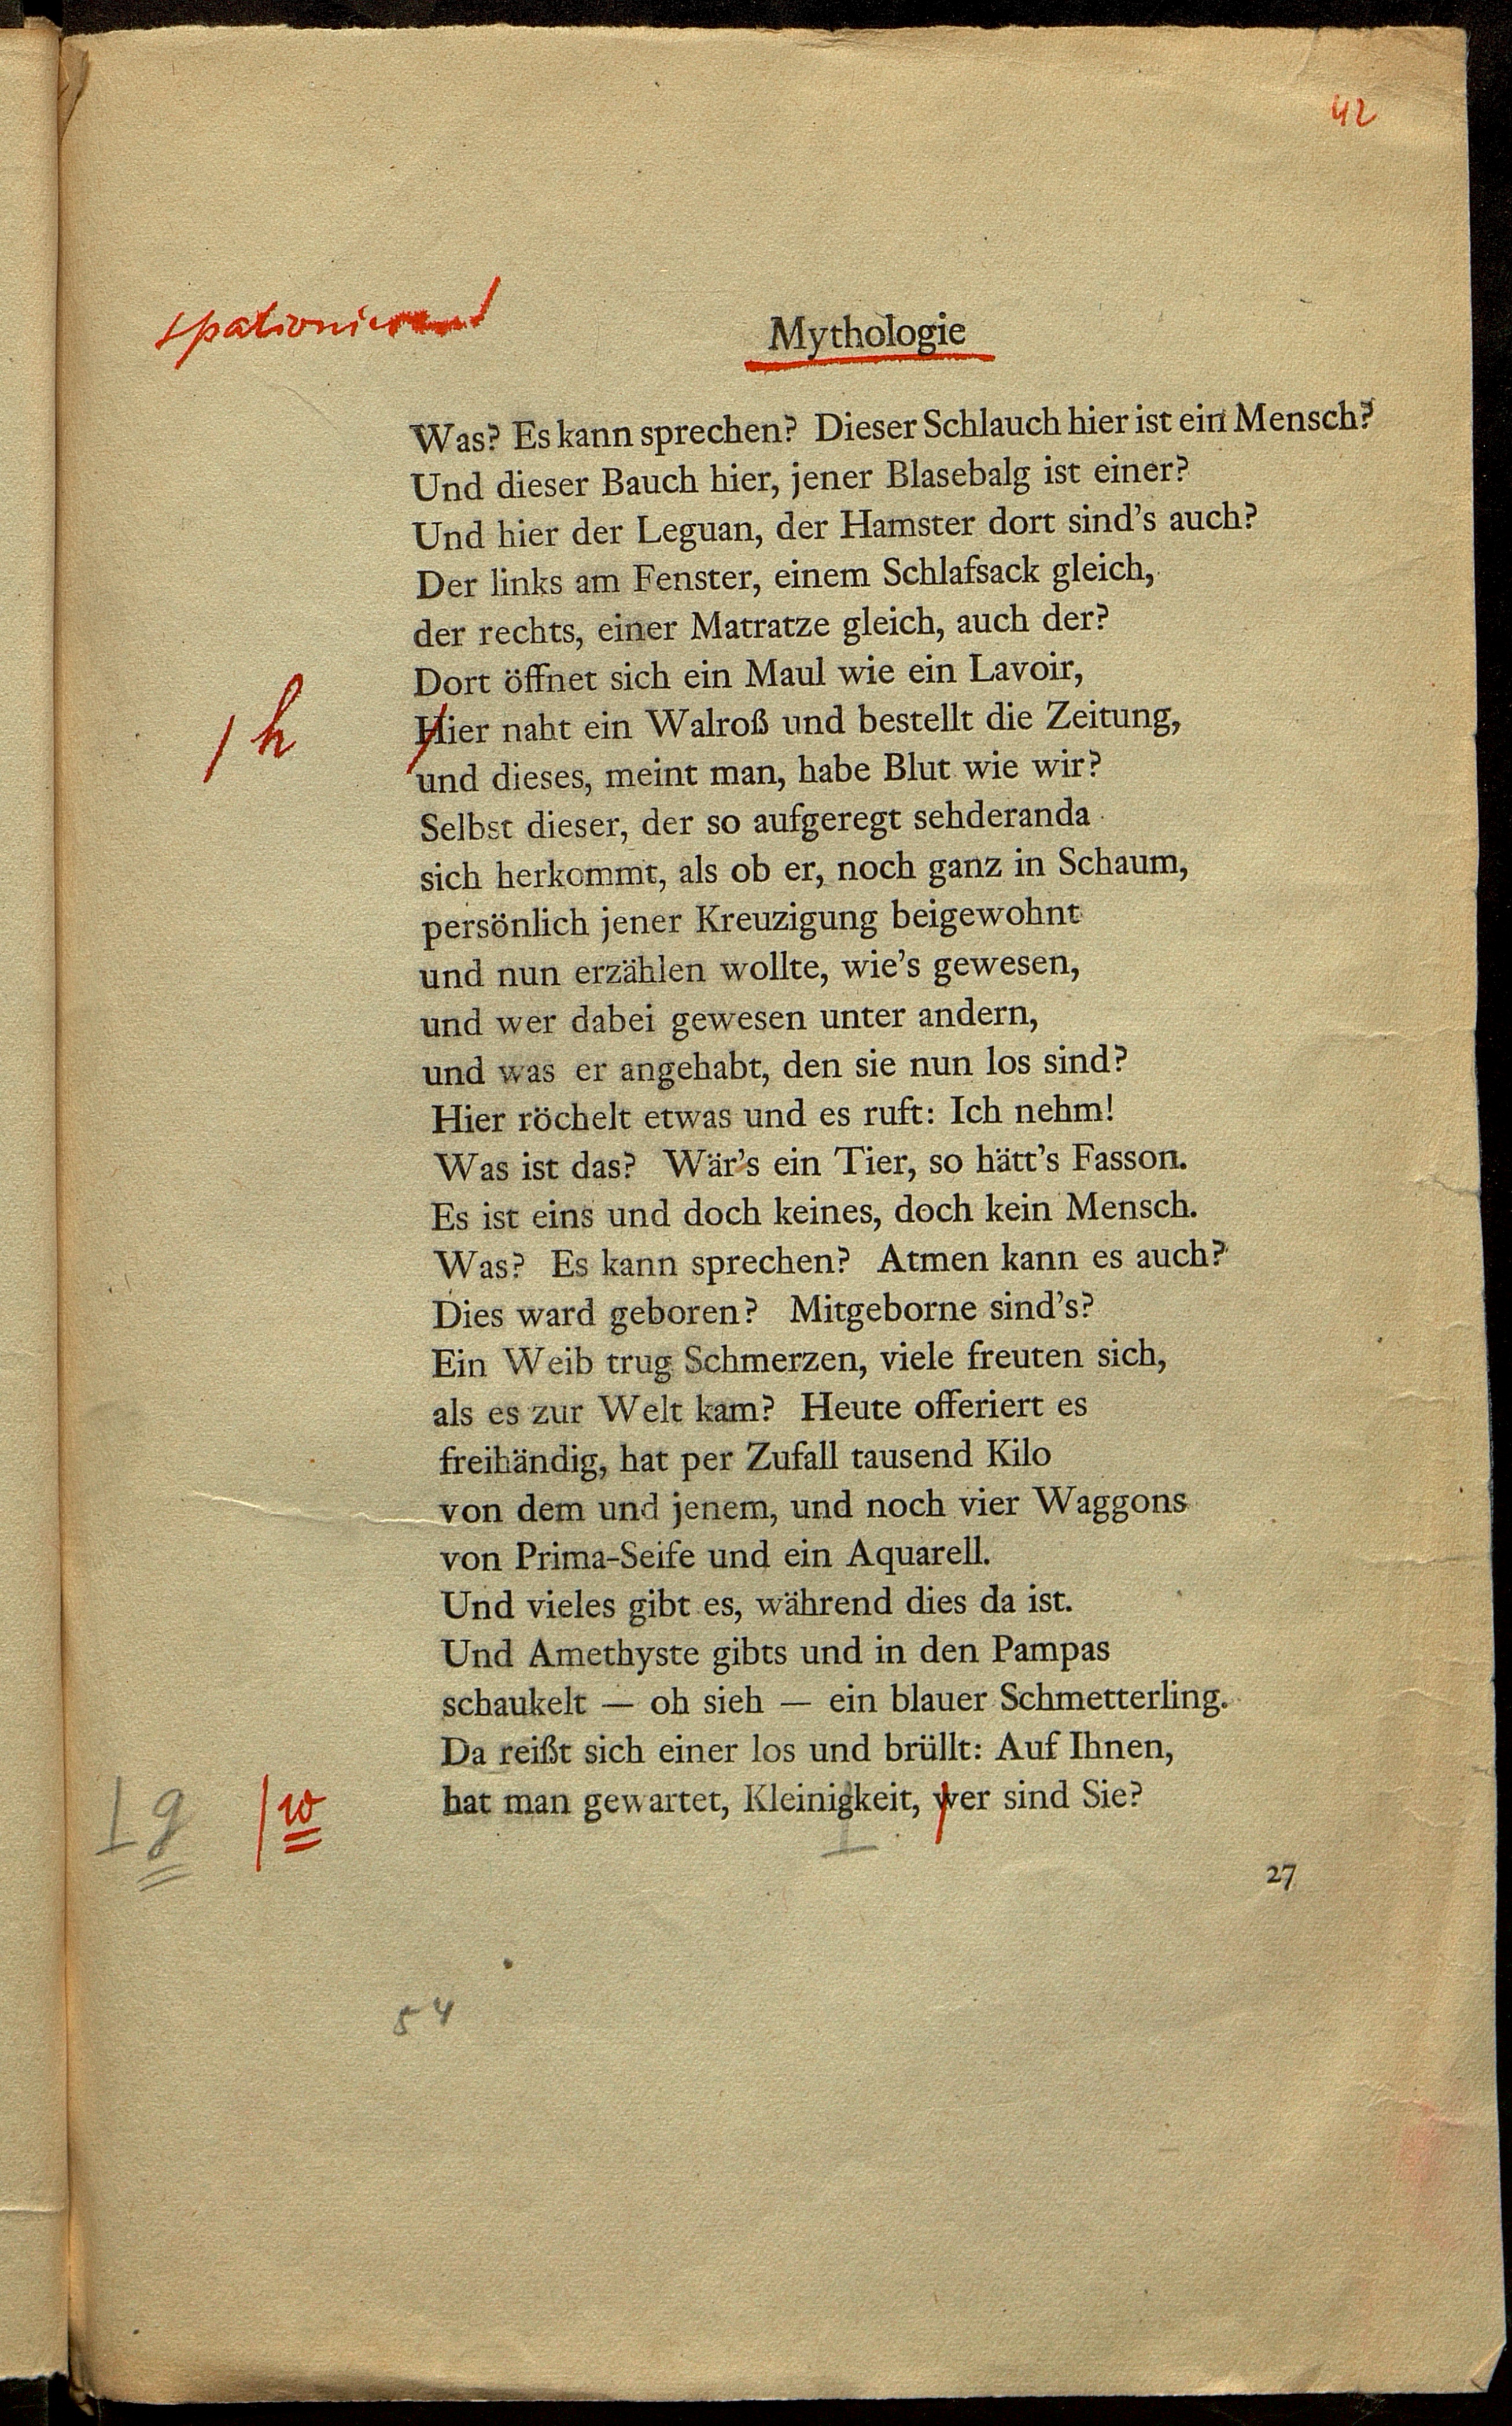 42
spationieren
Mythologie
Was? Es kann sprechen? Dieser Schlauch hier ist ein Mensch?
Und dieser Bauch hier, jener Blasebalg ist einer?
Und hier der Leguan, der Hamster dort sind's auch?
Der links am Fenster, einem Schlafsack gleich,
der rechts, einer Matratze gleich, auch der?
Dort öffnet sich ein Maul wie ein Lavoir,
/ h Hier naht ein Walroß und bestellt die Zeitung,
und dieses, meint man, habe Blut wie wir?
Selbst dieser, der so aufgeregt sehderanda
sich herkommt, als ob er, noch ganz in Schaum,
persönlich jener Kreuzigung beigewohnt
und nun erzählen wollte, wie's gewesen,
und wer dabei gewesen unter andern,
und was er angehabt, den sie nun los sind?
Hier röchelt etwas und es ruft: Ich nehm!
Was ist das? Wär's ein Tier, so hätt's Fasson.
Es ist eins und doch keines, doch kein Mensch.
Was? Es kann sprechen? Atmen kann es auch?
Dies ward geboren? Mitgeborne sind's?
Ein Weib trug Schmerzen, viele freuten sich,
als es zur Welt kam? Heute offeriert es
freihändig, hat per Zufall tausend Kilo
von dem und jenem, und noch vier Waggons
von Prima-Seife und ein Aquarell.
Und vieles gibt es, während dies da ist.
Und Amethyste gibts und in den Pampas
schaukelt — oh sieh — ein blauer Schmetterling.
Da reißt sich einer los und brüllt: Auf Ihnen,
g / w hat man gewartet, Kleinigkeit, wer sind Sie?
27
54